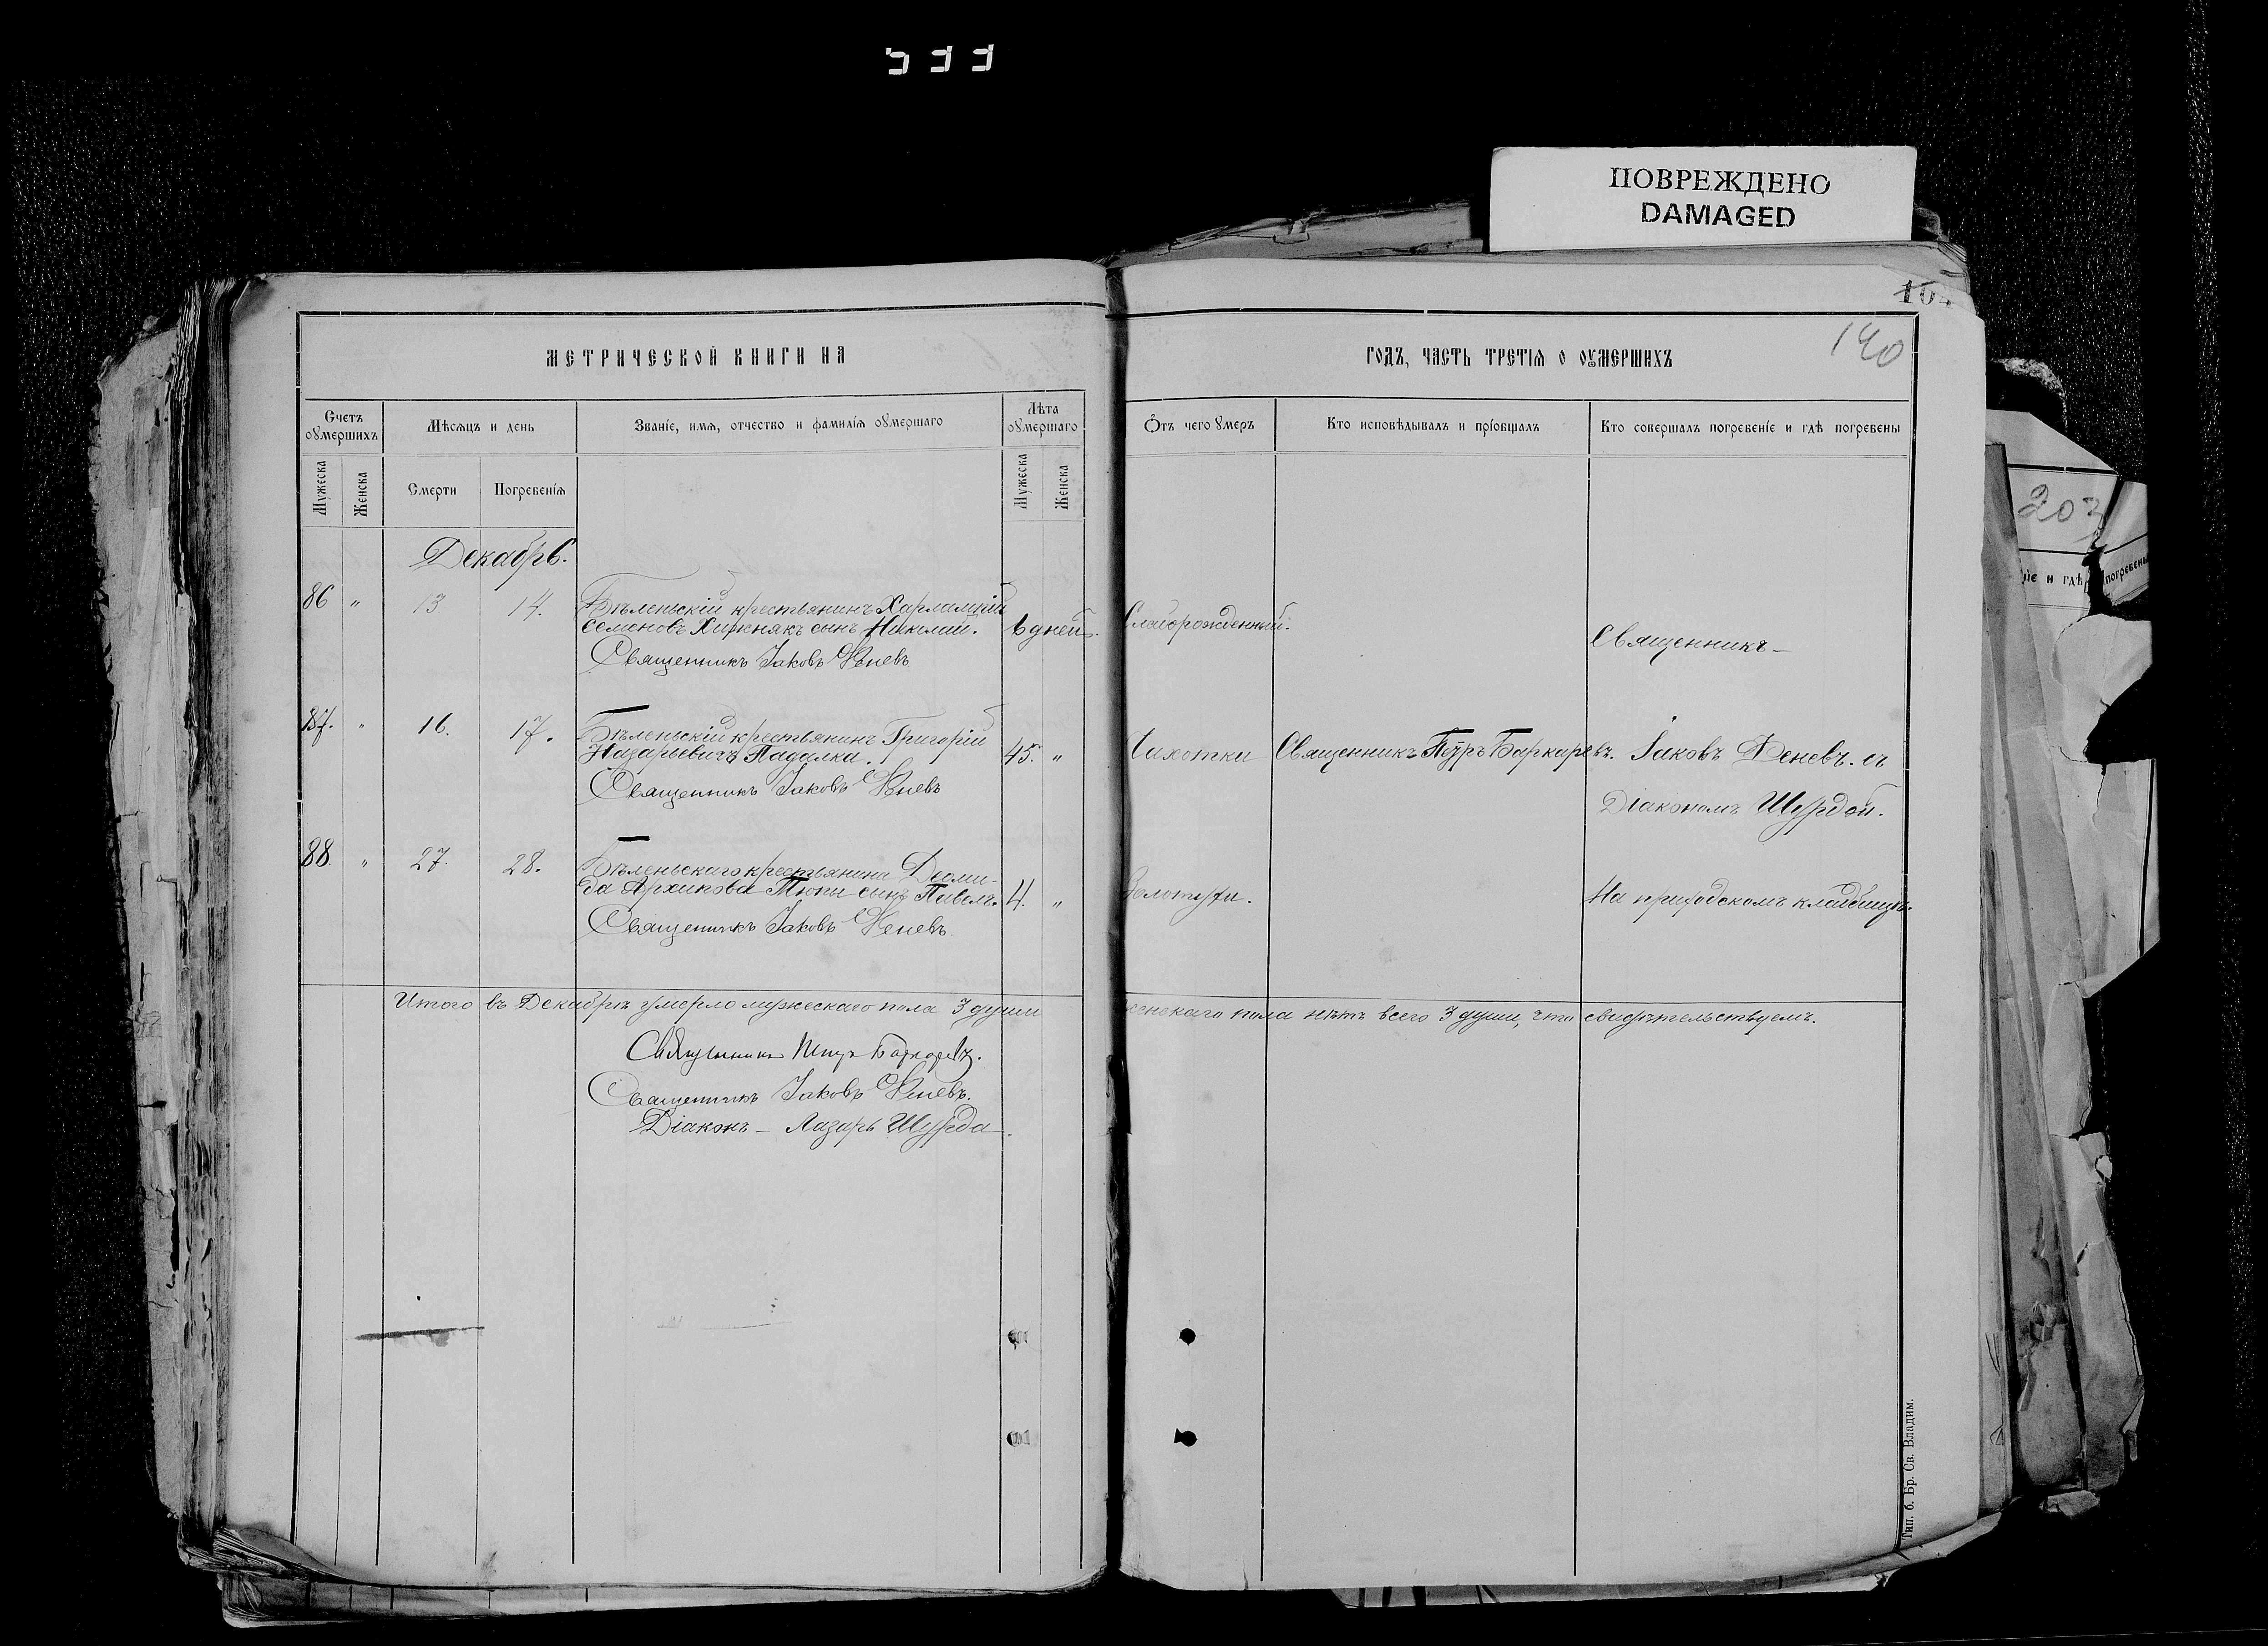 ПОВРЕЖДЕНО
DAMAGED
140
МЕТРИЧЕСКОЙ КНИГИ НА
ГОДЪ, ЧАСТЬ ТРЕТІЯ О ОУМЕРШИХЪ
Счетъ оумершихъ
Мѣсяцъ и день
Званіе, имя, отчество и фамилія оумершаго
Лѣта оумершаго
Отъ чего умеръ
Кто исповѣдывалъ и пріобщалъ
Кто совершалъ погребеніе и гдѣ погребены
Мужеска
Женска
Смерти
Погребенія
Мужеска
Женска
Декабрь.
86 " 13 14. Бѣленьскій крестьянинъ
Семеновъ сынъ Николай. 6 дней. Слаборожденный.
Священникъ Іаковъ Деневъ
Священникъ
87. " 16. 17. Бѣленьскій крестьянинъ Григорій
Назарьевичъ Падалка. 45. " Чахотки Священникъ Петръ Баркаревъ. Іаковъ Деневъ. съ
Священникъ Іаковъ Деневъ
Діакономъ Шурдой.
88. " 27. 28. Бѣленьскаго крестьянина Діоми-
да Архипова сынъ Павелъ. 4. " Золотухи. На приходскомъ кладбищѣ.
Священникъ Іаковъ Деневъ.
Итого въ Декабрѣ умерло мужескаго пола 3 души женскаго пола нѣтъ всего 3 души, что свидѣтельствуемъ.
Священникъ Петръ Баркаревъ.
Священникъ Іаковъ Деневъ.
Діаконъ – Лазарь Шурда.
203
Тип. б. Бр. Св. Владим.